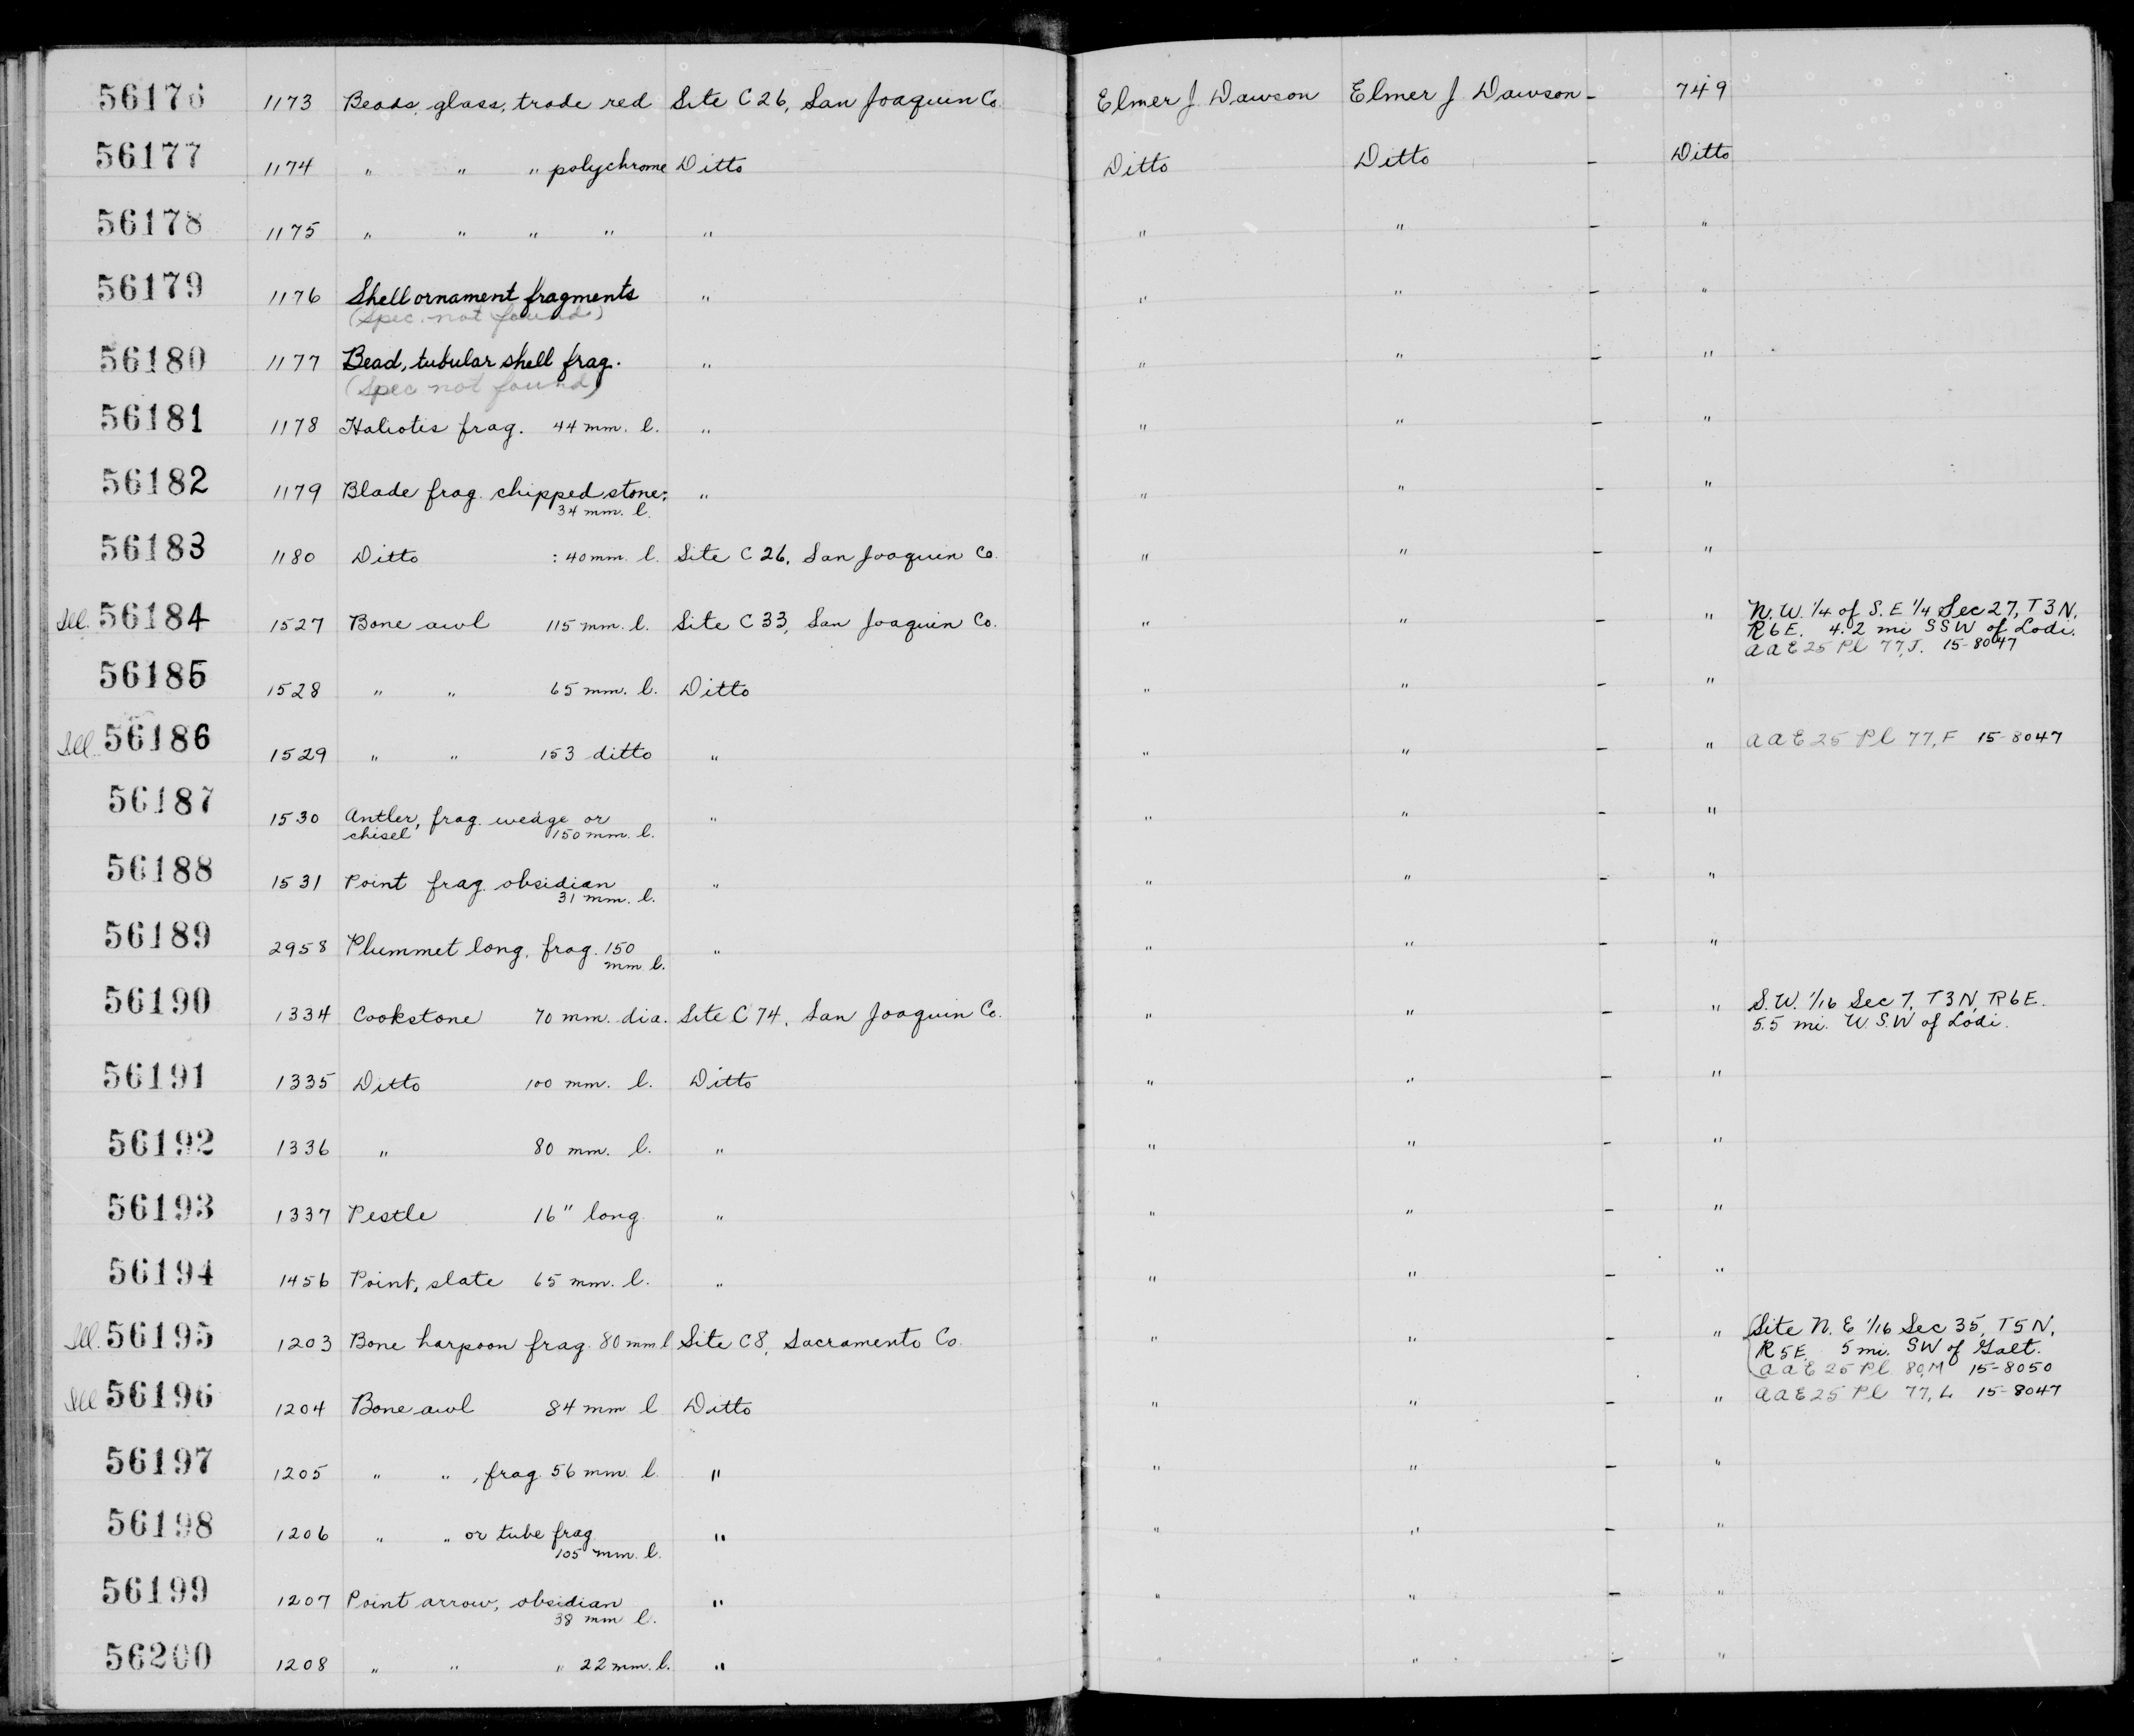 56176 1173 Beads, glass, trade red Site C26, San Joaquin Co. Elmer J Dawson Elmer J Dawson - 749
56177 1174 " " " polychrome Ditto Ditto Ditto - Ditto
56178 1175 " " " " " " " - "
56179 1176 Shell ornament fragments " " " - "
(Spec. not found)
56180 1177 Bead, tubular shell frag. " " " - "
(Spec not found)
56181 1178 Haliotis frag. 44 mm. l. " " " - "
56182 1179 Blade frag. chipped stone: " " " - "
34 mm. l.
56183 1180 Ditto : 40 mm. l. Site C26, San Joaquin Co. " " - "
Ill. 56184 1527 Bone awl 115 mm. l. Site C33, San Joaquin Co. " " - " N.W. 1/4 of S.E 1/4 Sec 27, T3N,
R6E. 4.2 mi SSW of Lodi.
AAE25 Pl 77,J. 15-8047
56185 1528 " " 65 mm. l. Ditto " " - "
Ill. 56186 1529 " " 153 ditto " " " - " AAE25 Pl 77,F 15-8047
56187 1530 Antler, frag. wedge or " " " - "
chisel 150 mm. l.
56188 1531 Point frag. obsidian " " " - "
31 mm. l.
56189 2958 Plummet long, frag. 150 " " " - "
mm l.
56190 1334 Cookstone 70 mm. dia. Site C74, San Joaquin Co. " " - " S.W. 1/16 Sec 7, T3N, R6E.
5.5 mi. W.S.W of Lodi.
56191 1335 Ditto 100 mm. l. Ditto " " - "
56192 1336 " 80 mm. l. " " " - "
56193 1337 Pestle 16" long " " " - "
56194 1456 Point, slate 65 mm. l. " " " - "
Ill. 56195 1203 Bone harpoon frag. 80 mm l Site C8, Sacramento Co. " " - " (Site N.E 1/16 Sec 35, T5N,
R5E. 5 mi. SW of Galt.
AAE25 Pl 80,M 15-8050
Ill 56196 1204 Bone awl 84 mm l Ditto " " - " AAE25 Pl 77, L 15-8047
56197 1205 " " , frag. 56 mm. l. " " " - "
56198 1206 " " or tube frag. " " " - "
105 mm. l.
56199 1207 Point arrow, obsidian " " " - "
38 mm l.
56200 1208 " " " 22 mm. l. " " " - "